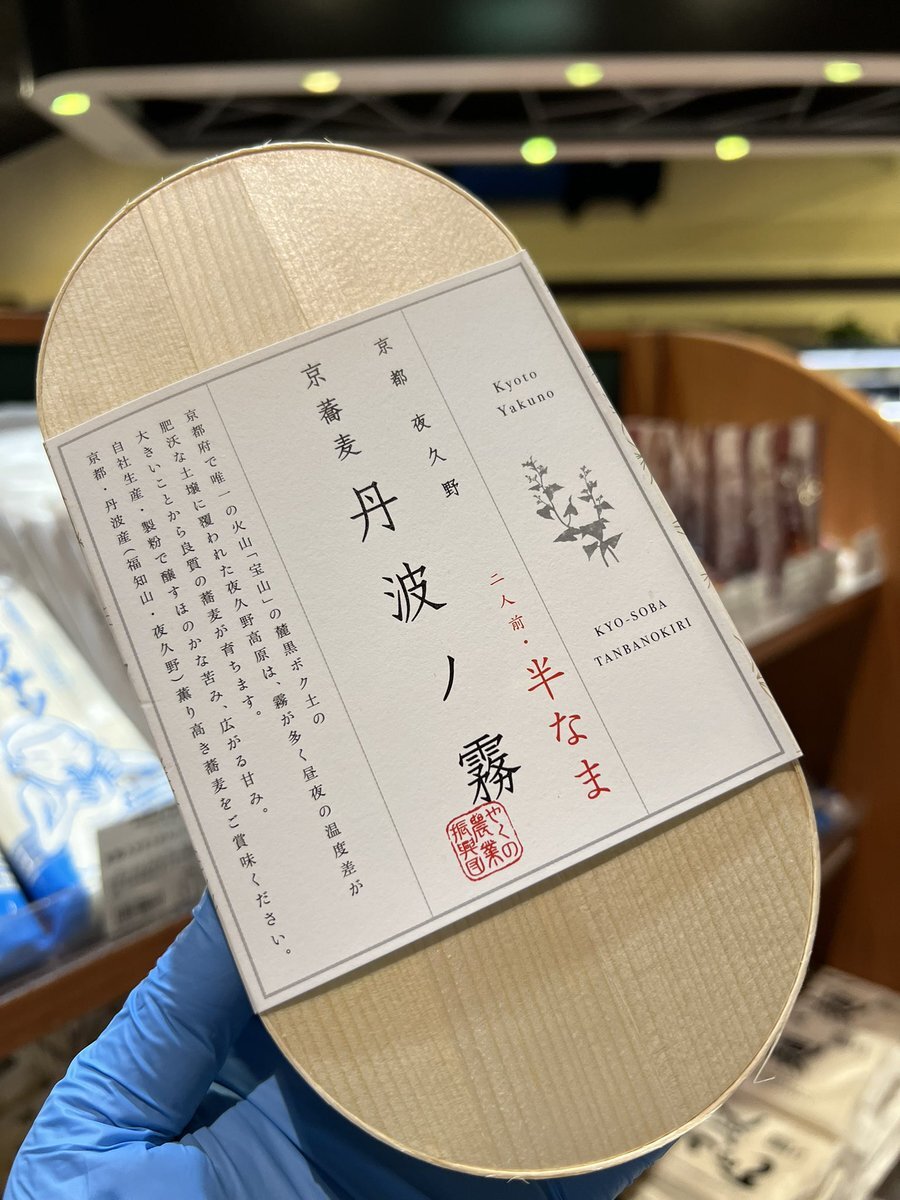 Kyoto
Yakuno
KYO-SOBA
TANBANOKIRI
二人前・半なま
京都 夜久野
京蕎麦 丹波ノ霧
やくの
農業
振興団
京都府で唯一の火山「宝山」の麓黒ボク土の
肥沃な土壌に覆われた夜久野高原は、霧が多く昼夜の温度差が
大きいことから良質の蕎麦が育ちます。
自社生産・製粉で醸すほのかな苦み、広がる甘み。
京都・丹波産(福知山・夜久野)薫り高き蕎麦をご賞味ください。